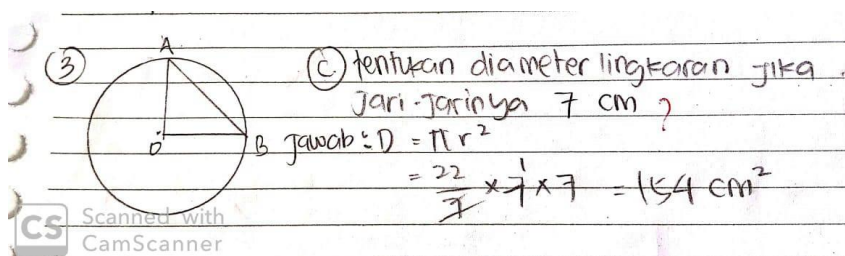 3
A
O
B
C. tentukan diameter lingkaran jika
Jari-Jarinya 7 cm ?
Jawab : D = πr²
= 22/7 × 7 × 7 = 154 cm²
1
CS Scanned with
CamScanner